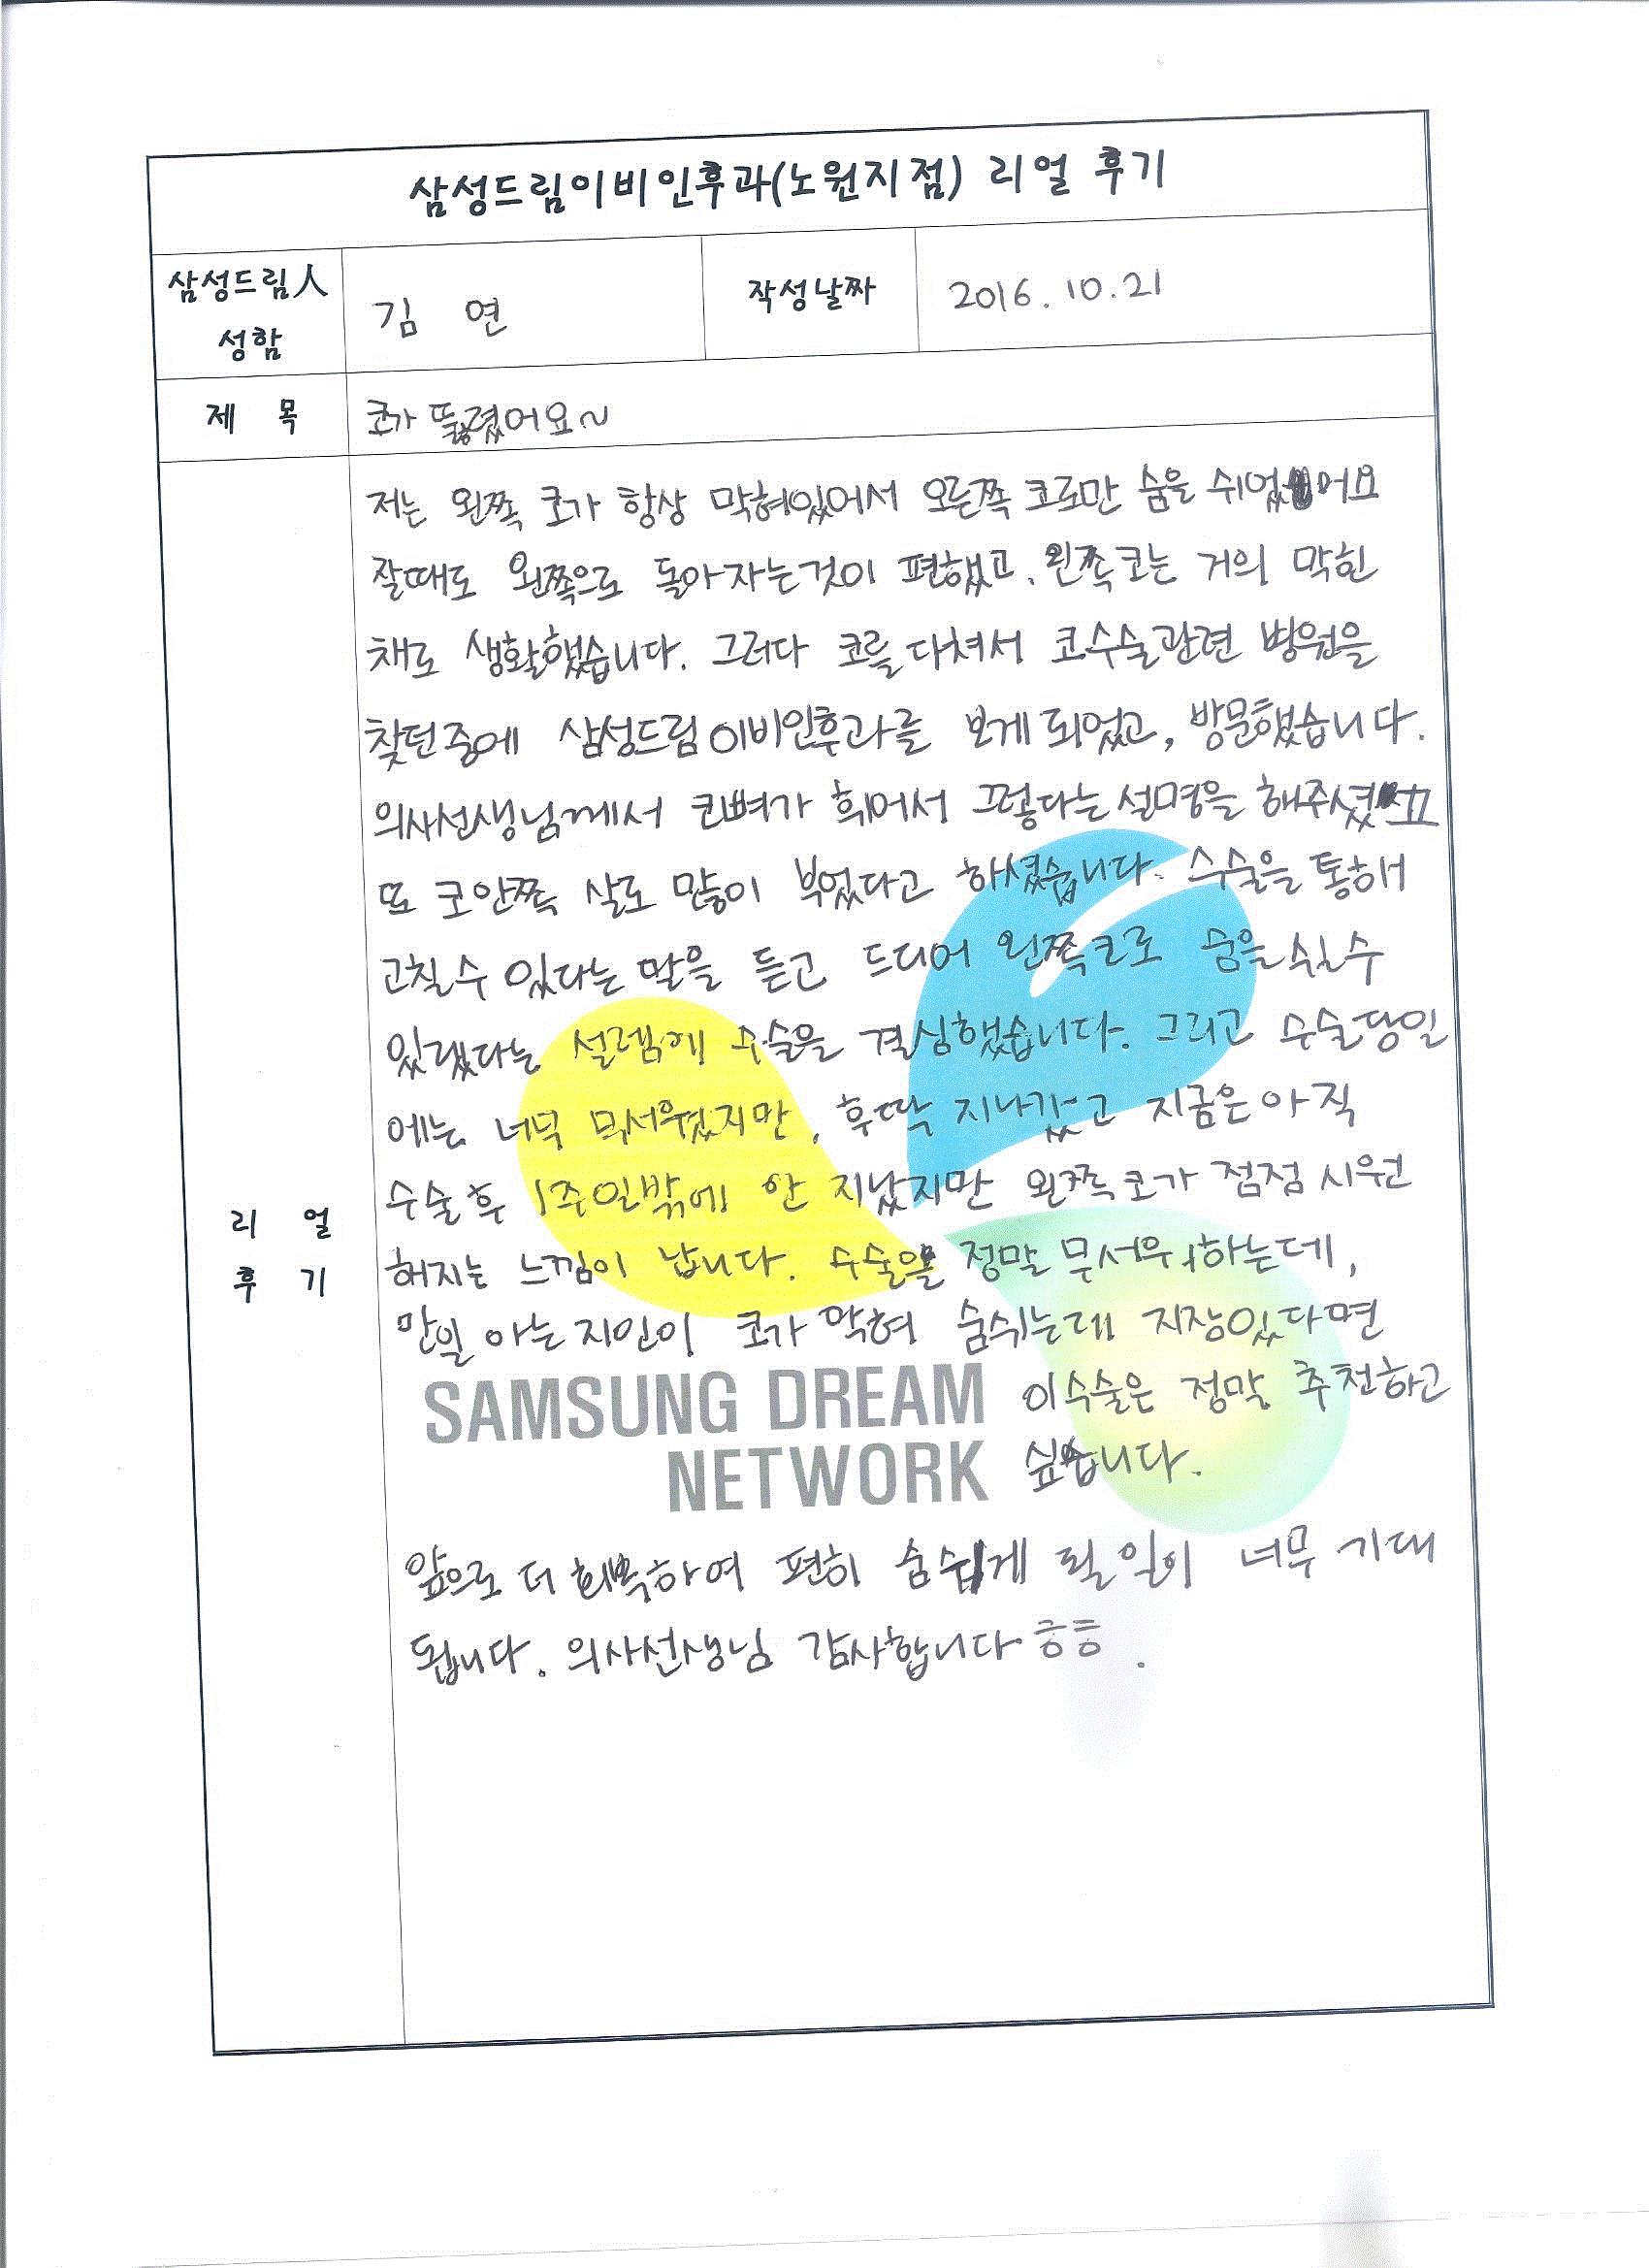 삼성드림이비인후과(노원지점) 리얼 후기
삼성드림人
성함
김 연
작성날짜
2016.10.21
제 목
코가 뚫렸어요~
리 얼
후 기
저는 왼쪽 코가 항상 막혀있어서 오른쪽 코로만 숨을 쉬었어요
잘때도 왼쪽으로 돌아자는것이 편했고, 왼쪽코는 거의 막힌
채로 생활했습니다. 그러다 코를 다쳐서 코수술관련 병원을
찾던중에 삼성드림이비인후과를 보게되었고, 방문했습니다.
의사선생님께서 코뼈가 휘어서 그렇다는 설명을 해주셨고
또 코안쪽 살도 많이 부었다고 하셨습니다. 수술을 통해서
고칠수 있다는 말을 듣고 드디어 왼쪽코로 숨을 쉴수
있겠다는 설렘에 수술을 결심했습니다. 그리고 수술당일
에는 너무 무서웠지만, 후딱 지나갔고 지금은 아직
수술후 1주일밖에 안 지났지만 왼쪽코가 점점 시원
해지는 느낌이 납니다. 수술을 정말 무서워하는데,
만일 아는 지인이 코가 막혀 숨쉬는데 지장있다면
이수술은 정말 추천하고
싶습니다.
SAMSUNG DREAM
NETWORK
앞으로 더 회복하여 편히 숨쉽게 될 일이 너무 기대
됩니다. 의사선생님 감사합니다 ㅎㅎ.